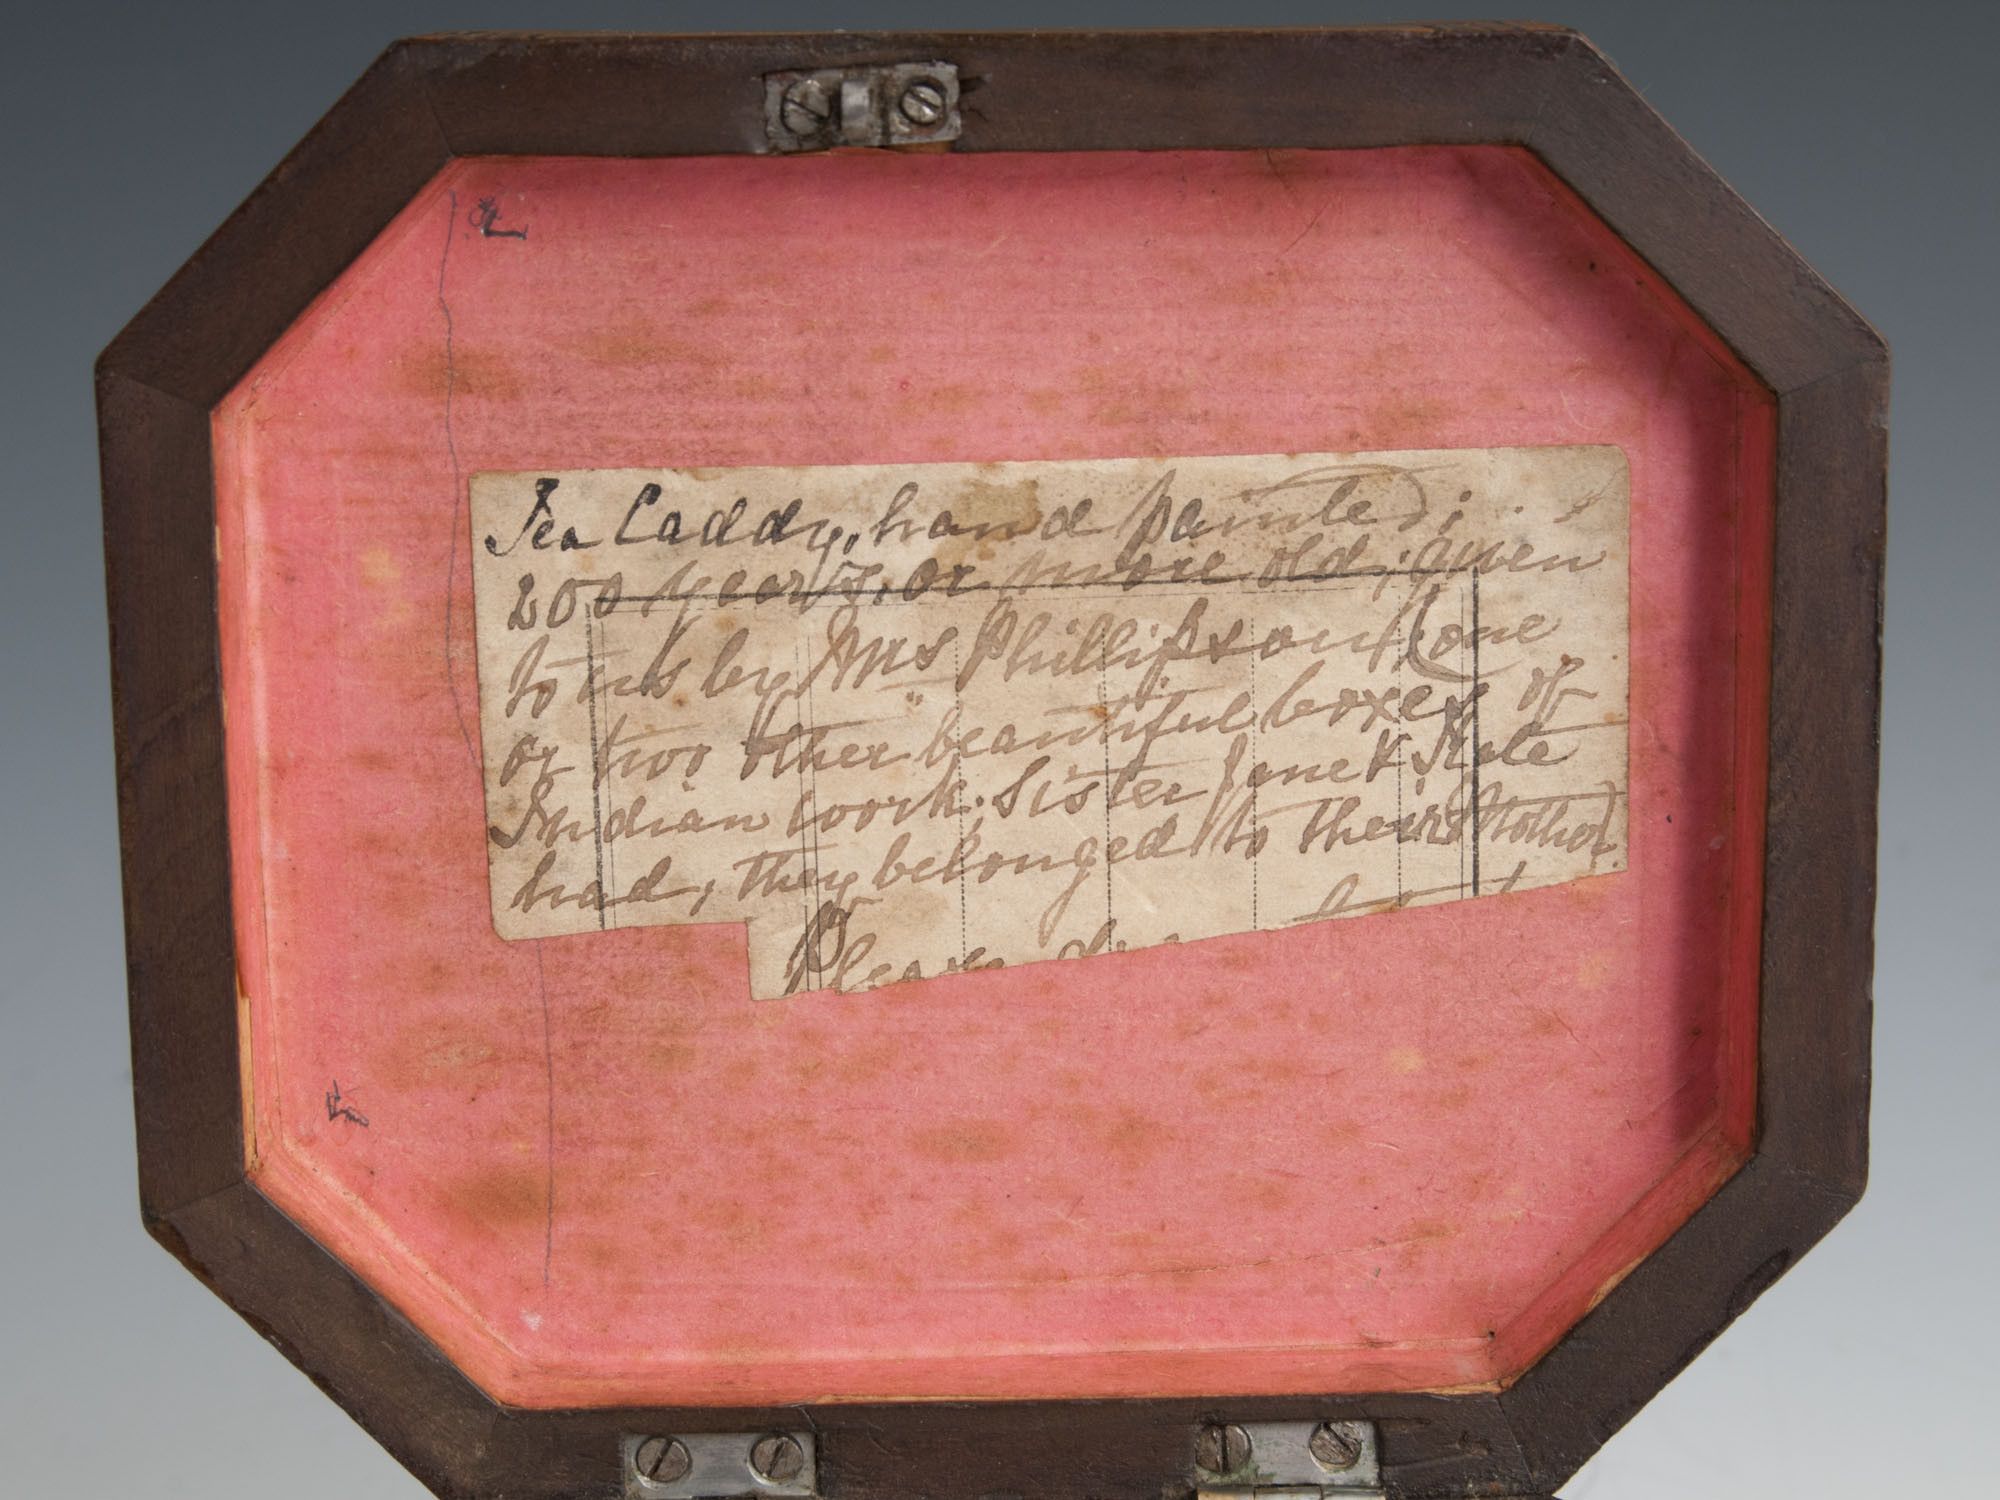 Tea Caddy, hand painted;
200 years, or more old; given
to us by Mrs Phillipson (one
or two other beautiful boxes of
Indian work; Sister Jane & Kate
had, they belonged to their Mother).
Please